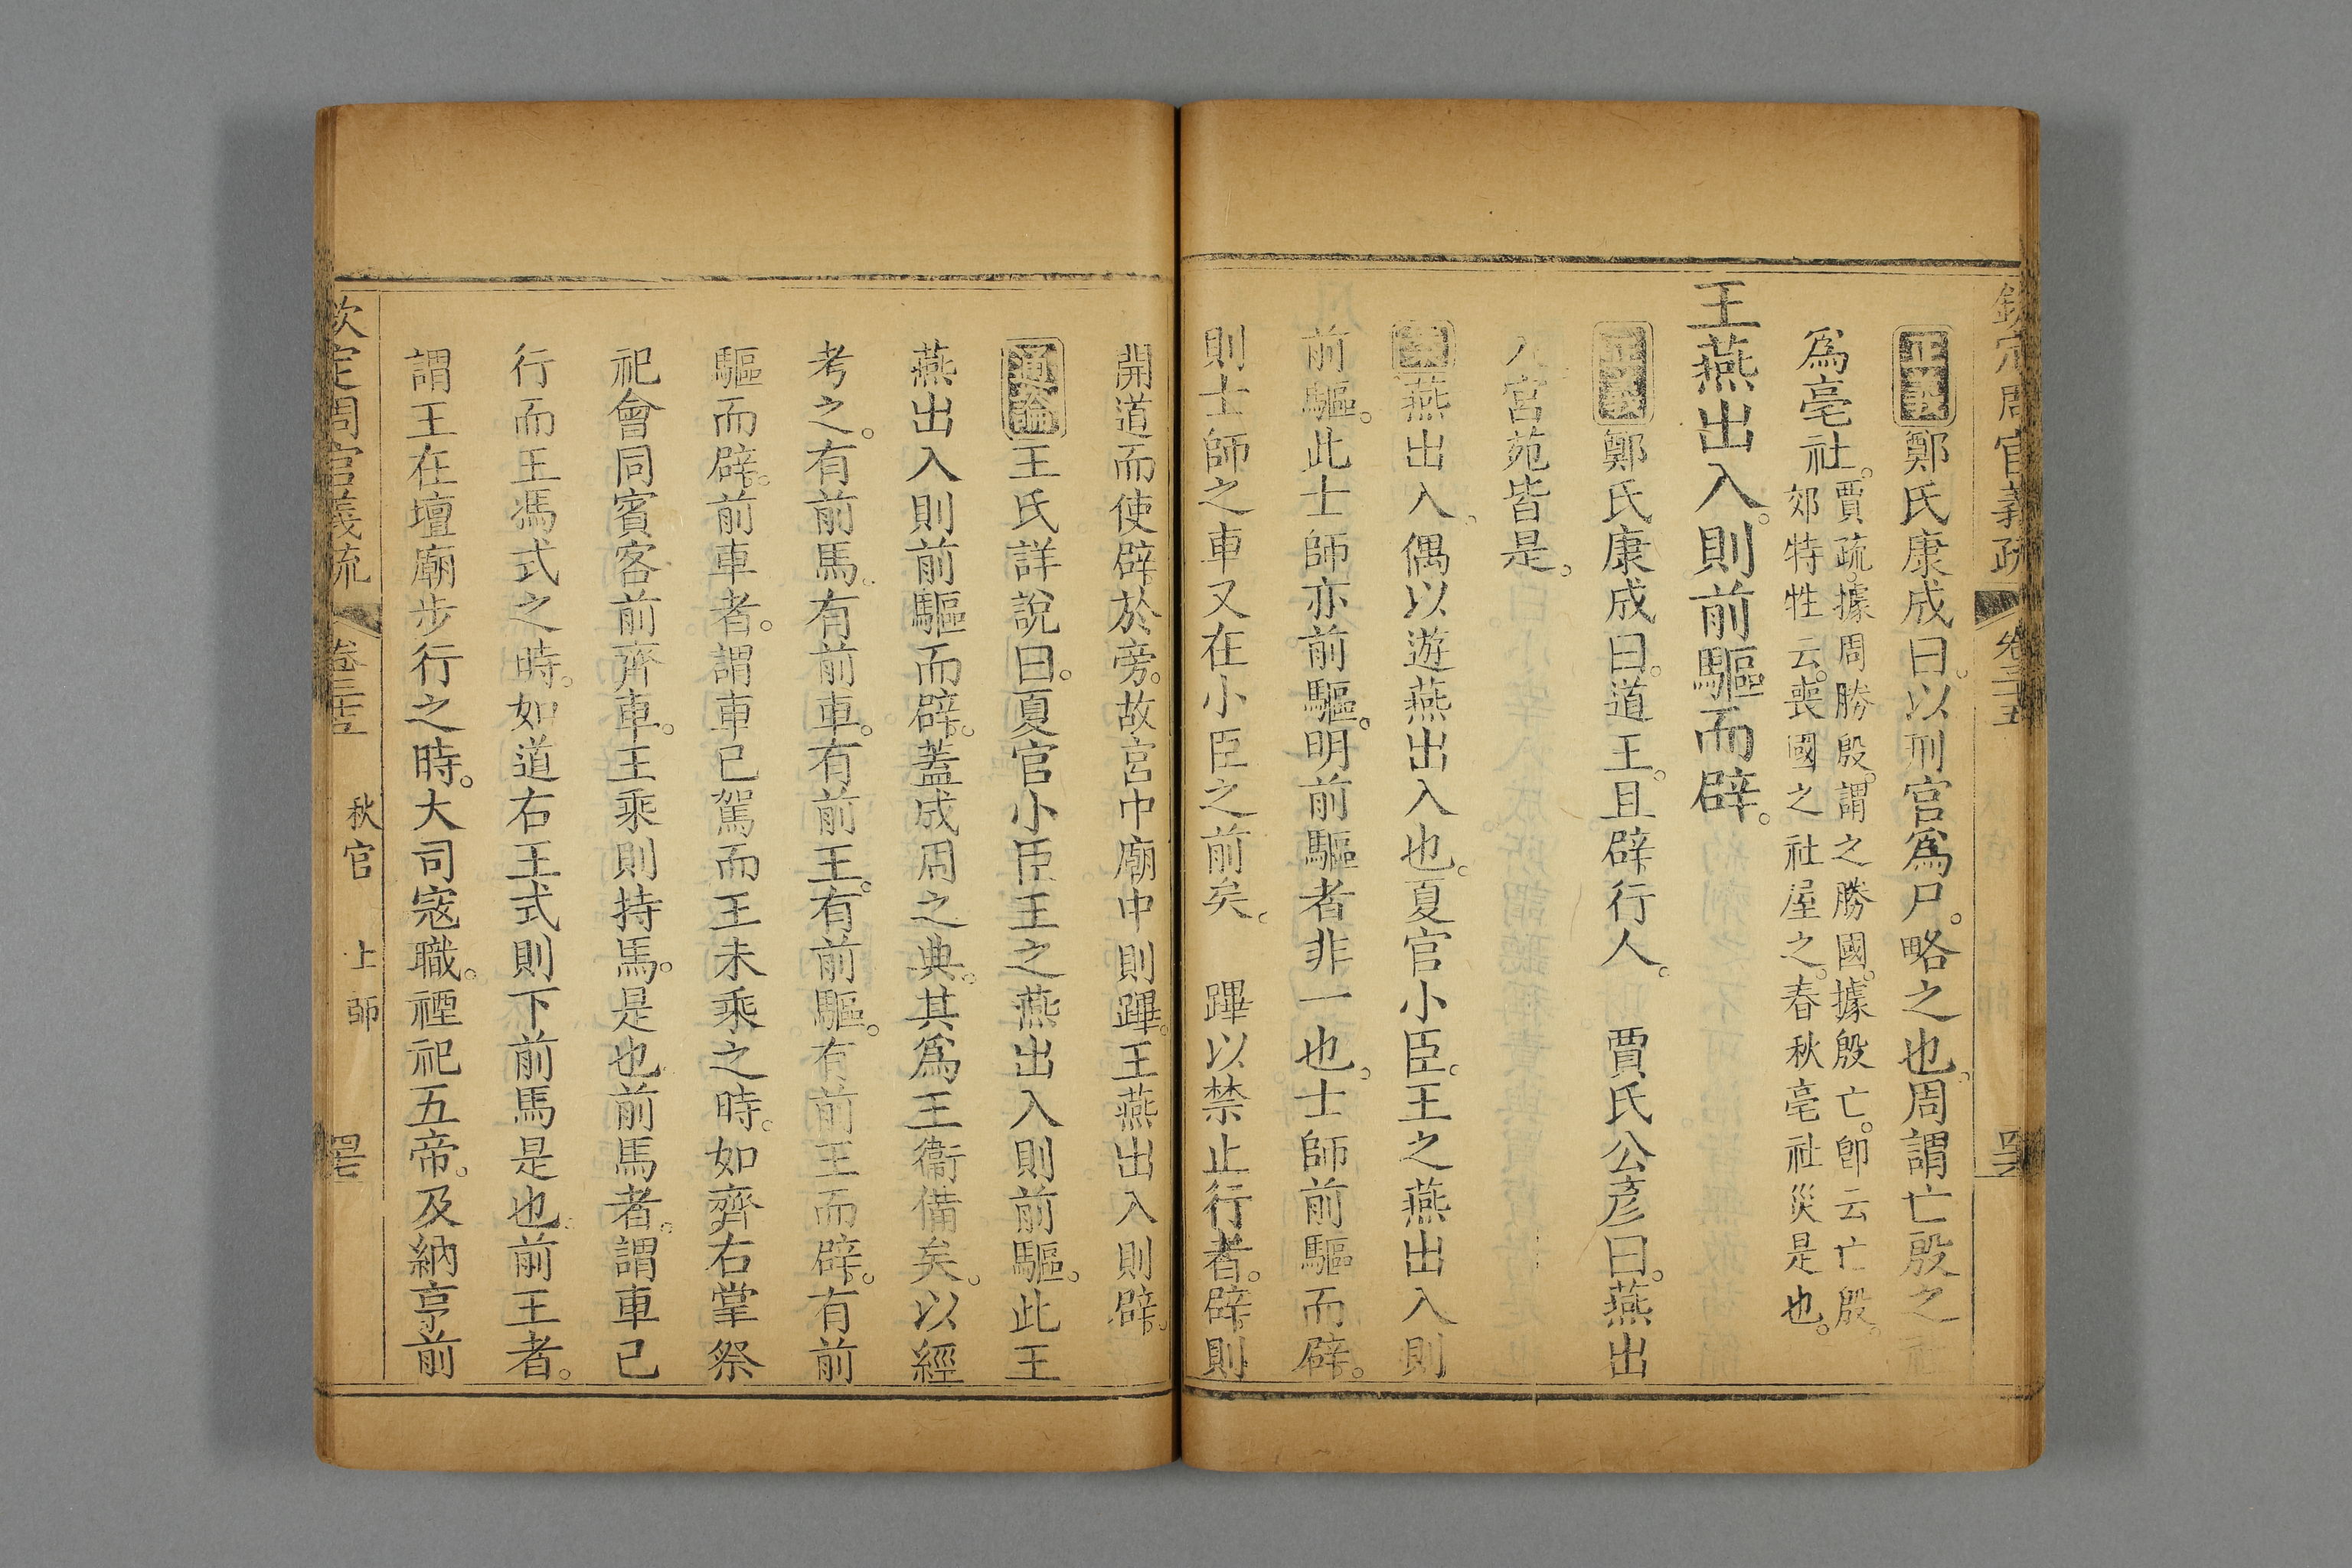 欽定周官義疏 卷三十五
正義鄭氏康成曰。以刑官爲尸。略之也。周謂亡殷之社
爲亳社。賈疏。據周勝殷。謂之勝國。據殷亡。卽云亡殷。
郊特牲云。喪國之社屋之。春秋亳社災是也。
王燕出入。則前驅而辟。
正義鄭氏康成曰。道王。且辟行人。 賈氏公彥曰。燕出
入宮苑皆是。
案燕出入、偶以遊燕出入也。夏官小臣。王之燕出入則
前驅。此士師亦前驅。明前驅者非一也。士師前驅而辟。
則士師之車又在小臣之前矣。 蹕以禁止行者。辟則
開道而使辟於旁。故宮中廟中則蹕。王燕出入則辟。
通論王氏詳說曰。夏官小臣王之燕出入則前驅。此王
燕出入則前驅而辟。蓋成周之典。其爲王衞備矣。以經
考之。有前馬。有前車。有前王。有前驅。有前王而辟。有前
驅而辟。前車者。謂車已駕而王未乘之時。如齊右掌祭
祀會同賓客前齊車。王乘則持馬。是也前馬者。謂車已
行而王馮式之時。如道右王式則下前馬是也。前王者。
謂王在壇廟步行之時。大司寇職。禋祀五帝。及納亨前
欽定周官義疏 卷三十五 秋官 士師